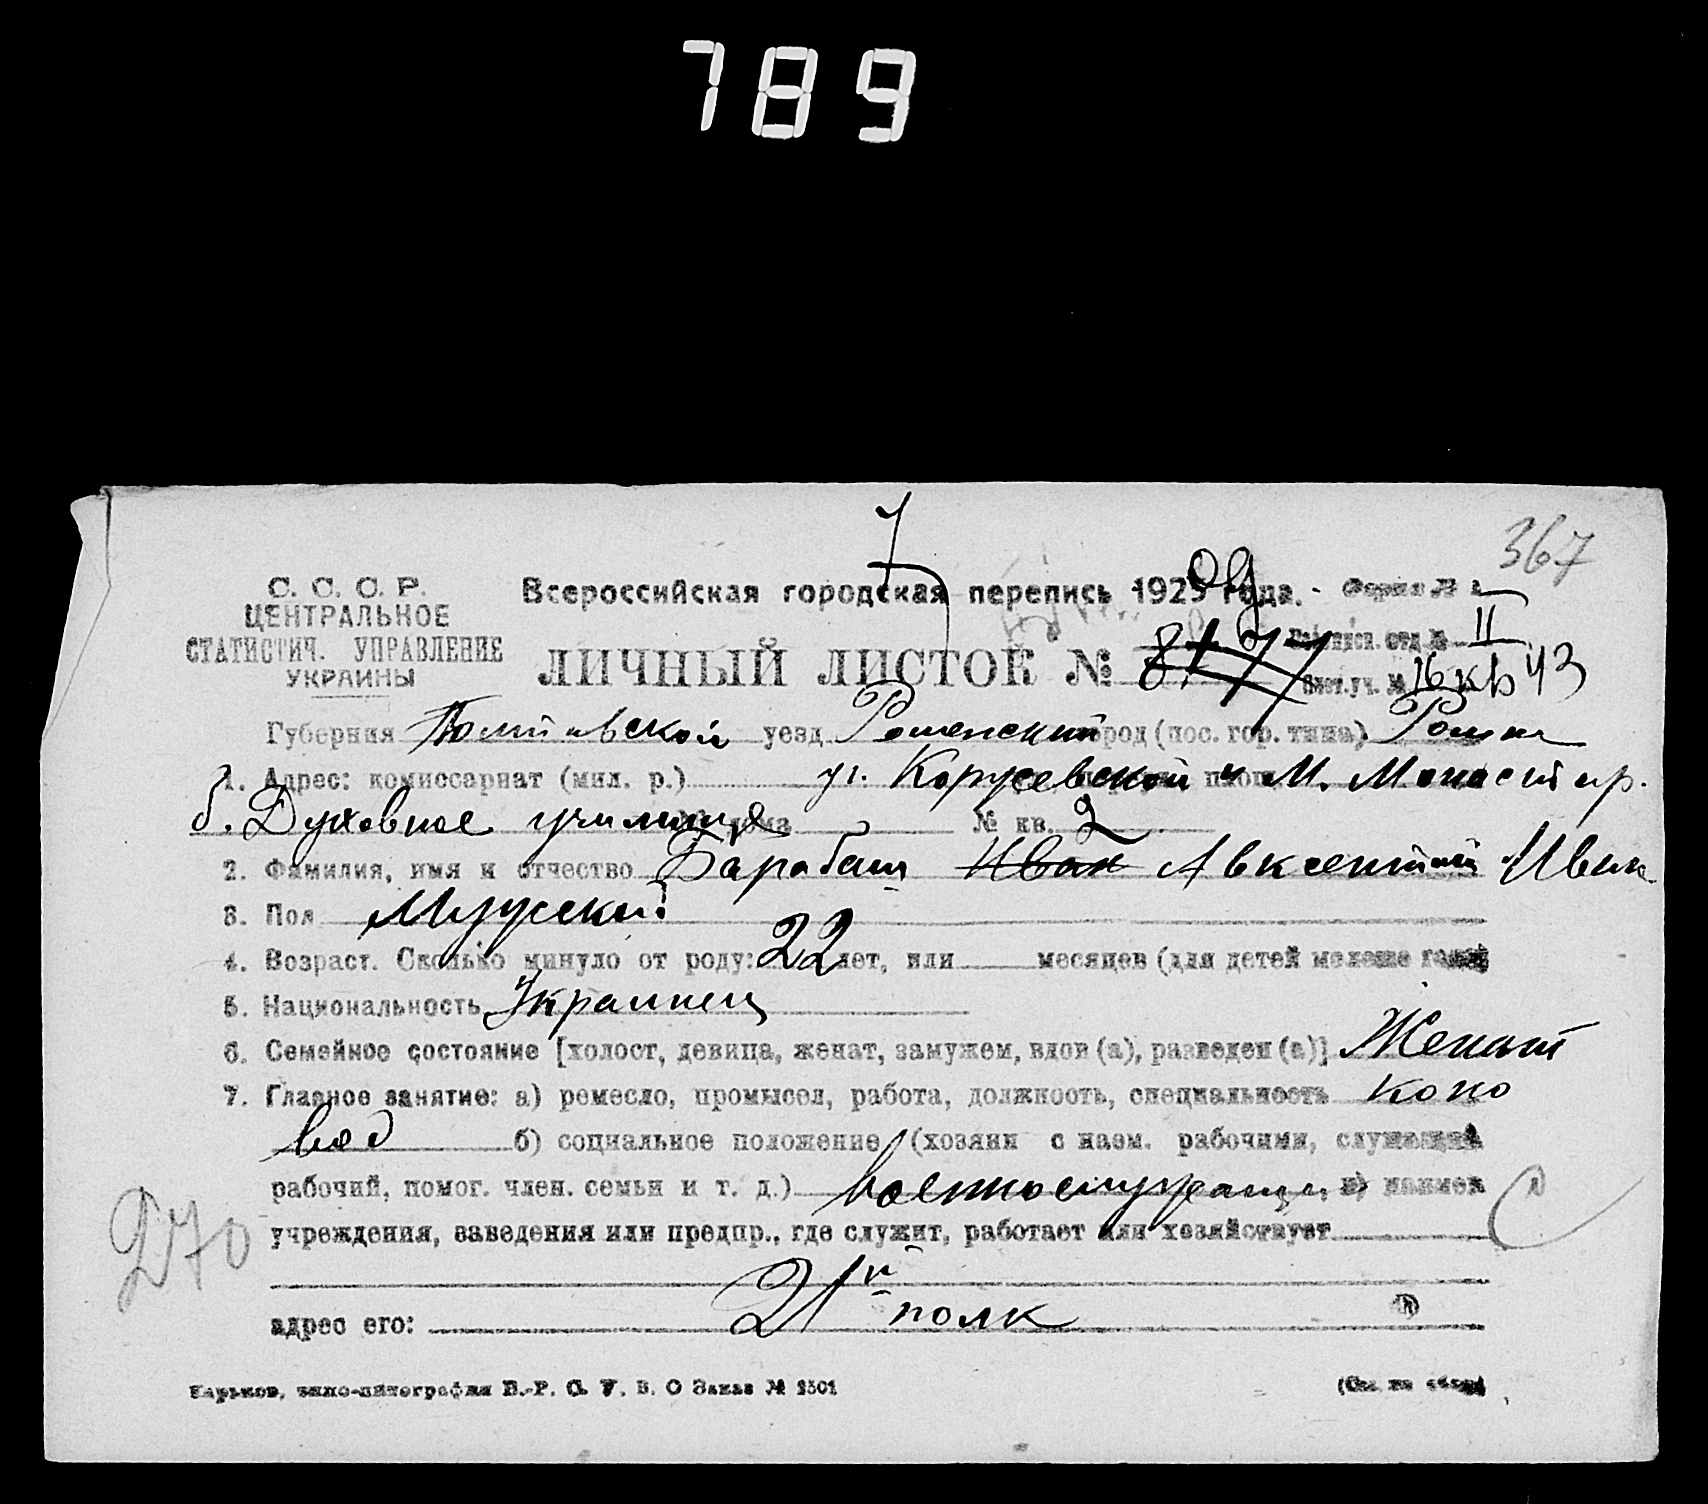 789
7
367
С. С. С. Р.
ЦЕНТРАЛЬНОЕ
СТАТИСТИЧ. УПРАВЛЕНИЕ
УКРАИНЫ
Всероссийская городская перепись 1923 года. Форма №
ЛИЧНЫЙ ЛИСТОК №
отд. № II
уч. № 16 кв 43
Губерния Полтавской уезд Роменский город (пос. гор. типа) Ромны
1. Адрес: комиссариат (мил. р.) уг. и М. Монастыр.
б. Духовное училище дома № кв. 2
2. Фамилия, имя и отчество Барабаш Иван Авксентий Иван.
3. Пол Мужской
4. Возраст. Сколько минуло от роду: 22 лет, или месяцев (для детей моложе года)
5. Национальность Украинец
6. Семейное состояние [холост, девица, женат, замужем, вдов (а), разведен (а)] Женат
7. Главное занятие: а) ремесло, промысел, работа, должность, специальность коно
вод б) социальное положение (хозяин с наем. рабочими, служащий
рабочий, помог. член. семьи и т. д.) военнослужащ. в) наимен
учреждения, заведения или предпр., где служит, работает или хозяйствует
270
21й полк
адрес его:
Харьков, типо-литография В. О Заказ № 2501